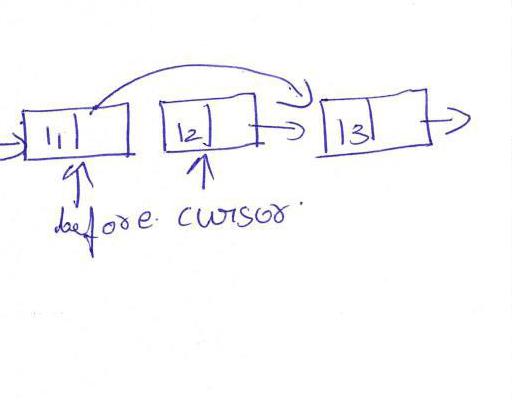 11 12 13
before cursor